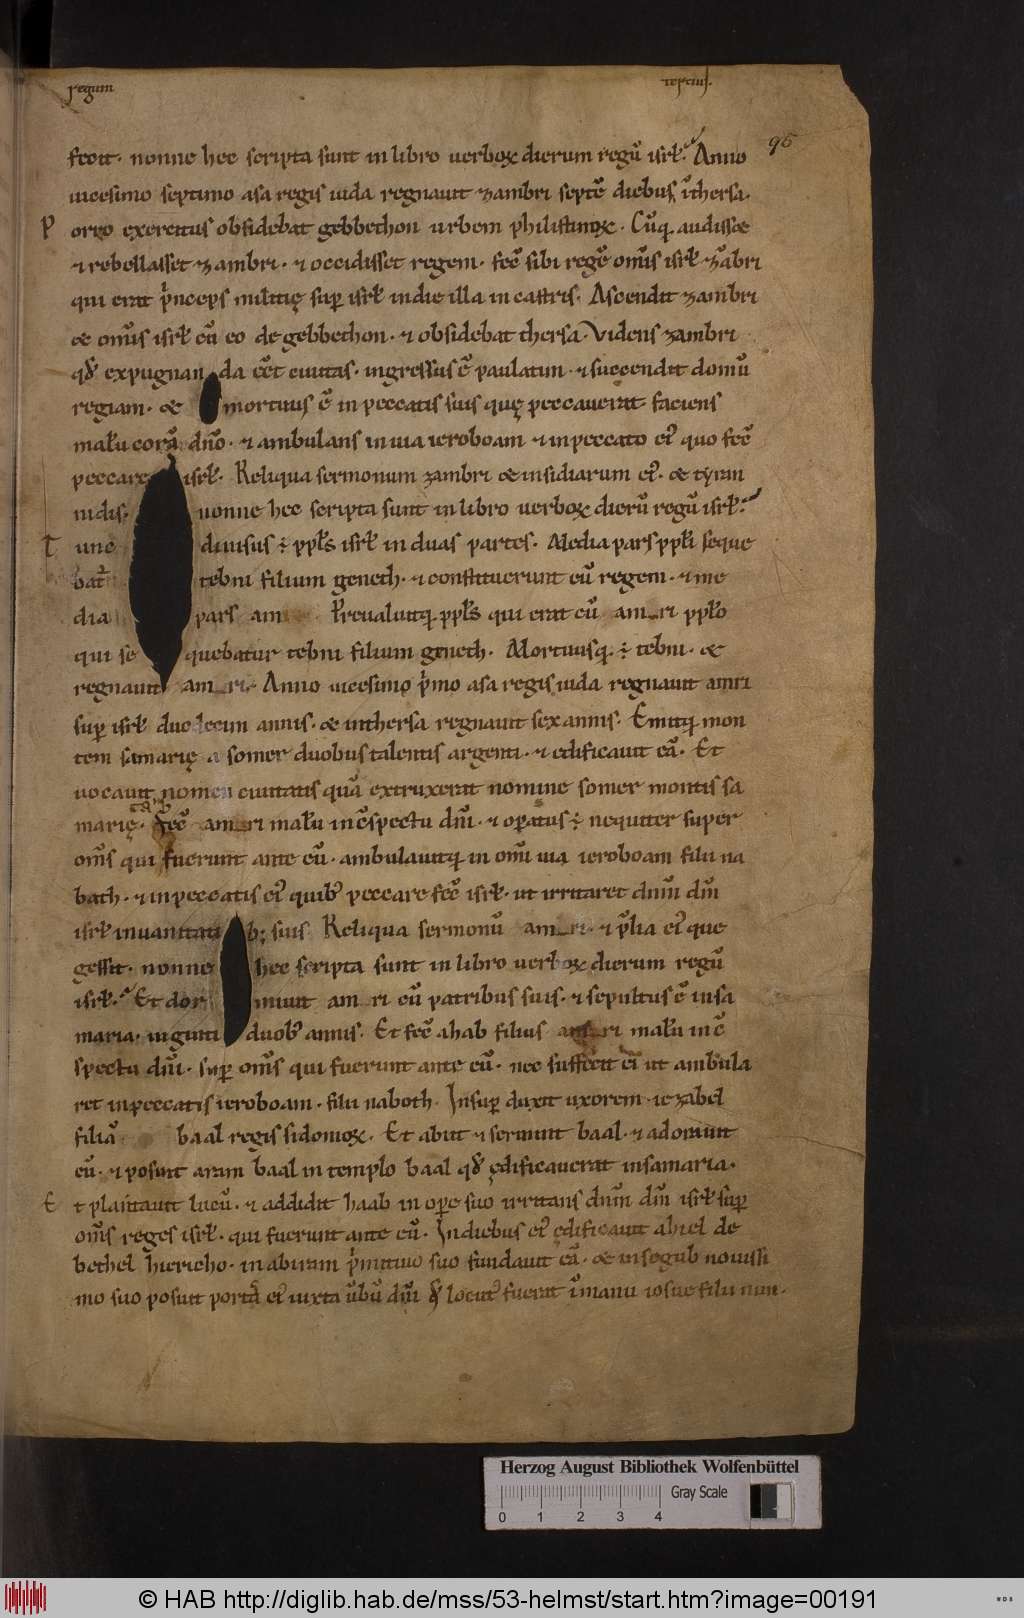 regum tercius.
95
fecit. nonne hec scripta sunt in libro uerboꝝ dierum regū isrł. Anno
uicesimo septimo asa regis iuda regnauit zambri septē diebus ī thersa.
P orro exercitus obsidebat gebbethon urbem philistinoꝝ. Cūq; audisset
⁊ rebellasset zambri. ⁊ occidisset regem. fec̄ sibi regē om̄s isrł zābri
qui erat pͥnceps militię sup isrł in die illa in castris. Ascendit zambri
et om̄is isrł cū eo de gebbethon. ⁊ obsidebat thersa. Videns zambri
qđ expugnanda eēt ciuitas. ingressus ē palatiun. ⁊ succendit domū
regiam. et mortuus ē in peccatis suis quę peccauerat faciens
mału corā dn̄o. ⁊ ambulans in uia ieroboam ⁊ in peccato ei' quo fec̄
peccare isrł. Reliqua sermonum zambri et insidiarum ei'. et tyran
nidis. nonne hec scripta sunt in libro uerboꝝ dierū regū isrł.
T unc diuisus ÷ ppłs isrł in duas partes. Media pars ppłi seque
bat' tebni filium geneth. ⁊ constituerunt eū regem. ⁊ me
dia pars am Preualuitq; ppłs qui erat cū am ri ppło
qui sequebatur tebni filium geneth. Mortuusq; ÷ tebni. et
regnauit am ri. Anno uicesimo pͥmo asa regis iuda regnauit amri
sup isrł duodecim annis. et in thersa regnauit sex annis. Emitq; mon
tem samarię a somer duobus talentis argenti. ⁊ edificauit eā. Et
uocauit nomen ciuitatis quā extruxerat nomine somer montis sa
marię. fec̄ am ri mału in c̄spectu dn̄i. ⁊ opatus ÷ nequiter super
om̄s qui fuerunt ante eū. ambulauitq; in om̄i uia ieroboam filii na
bath. ⁊ in peccatis ei' quib' peccare fec̄ isrł. ut irritaret dn̄m dm̄
isrł in uanitatib; suis Reliqua sermonū am ri. ⁊ p̄lia ei' que
gessit. nonne hec scripta sunt in libro uerboꝝ dierum regū
isrł. Et dormiuit am ri cū patribus suis. ⁊ sepultus ē in sa
maria. uiginti duob' annis. Et fec̄ ahab filius am ri mału in c̄
spectu dn̄i. sup om̄s qui fuerunt ante eū. nec suffecit ei ut ambula
ret in peccatis ieroboam. filii naboth. Insup duxit uxorem iezabel
filiā baal regis sidonioꝝ. Et abiit ⁊ seruiuit baal. ⁊ adorauit
eū. ⁊ posuit aram baal in templo baal qđ ędificauerat in samaria.
E t plantauit lucū. ⁊ addidit haab in ope suo irritans dn̄m dm̄ isrł sup
om̄s reges isrł. qui fuerunt ante eū. In diebus ei' edificauit ahiel de
bethel hiericho. in abiram pͥmitiuo suo fundauit eā. et in segub nouissi
mo suo posuit portā ei' iuxta ūbū dn̄i qđ locut' fuerat ī manu iosue filii nun.
Herzog August Bibliothek Wolfenbüttel
Gray Scale
0 1 2 3 4
© HAB http://diglib.hab.de/mss/53-helmst/start.htm?image=00191